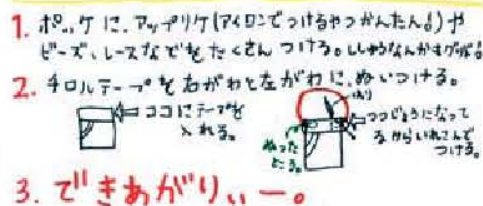 1. ポッケに、アップリケ(アイロンでつけるやつかんたん♪)や
ビーズ、レースなどをたくさんつける。ししゅうなんかもグゥ♪
2. チロルテープを右がわと左がわに、ぬいつける。
ココにテープを
入れる。
はり
つつじょうになって
るからいれこんで
つける。
ぬった
ところ。
3. できあがりぃー。